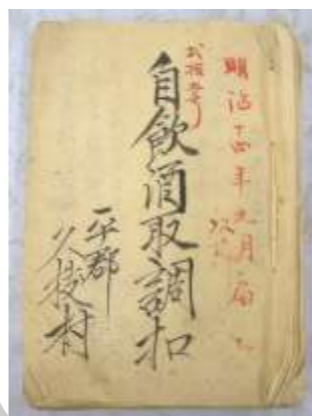 明治十四年九月届
自飲酒取調扣
平郡
久枝村